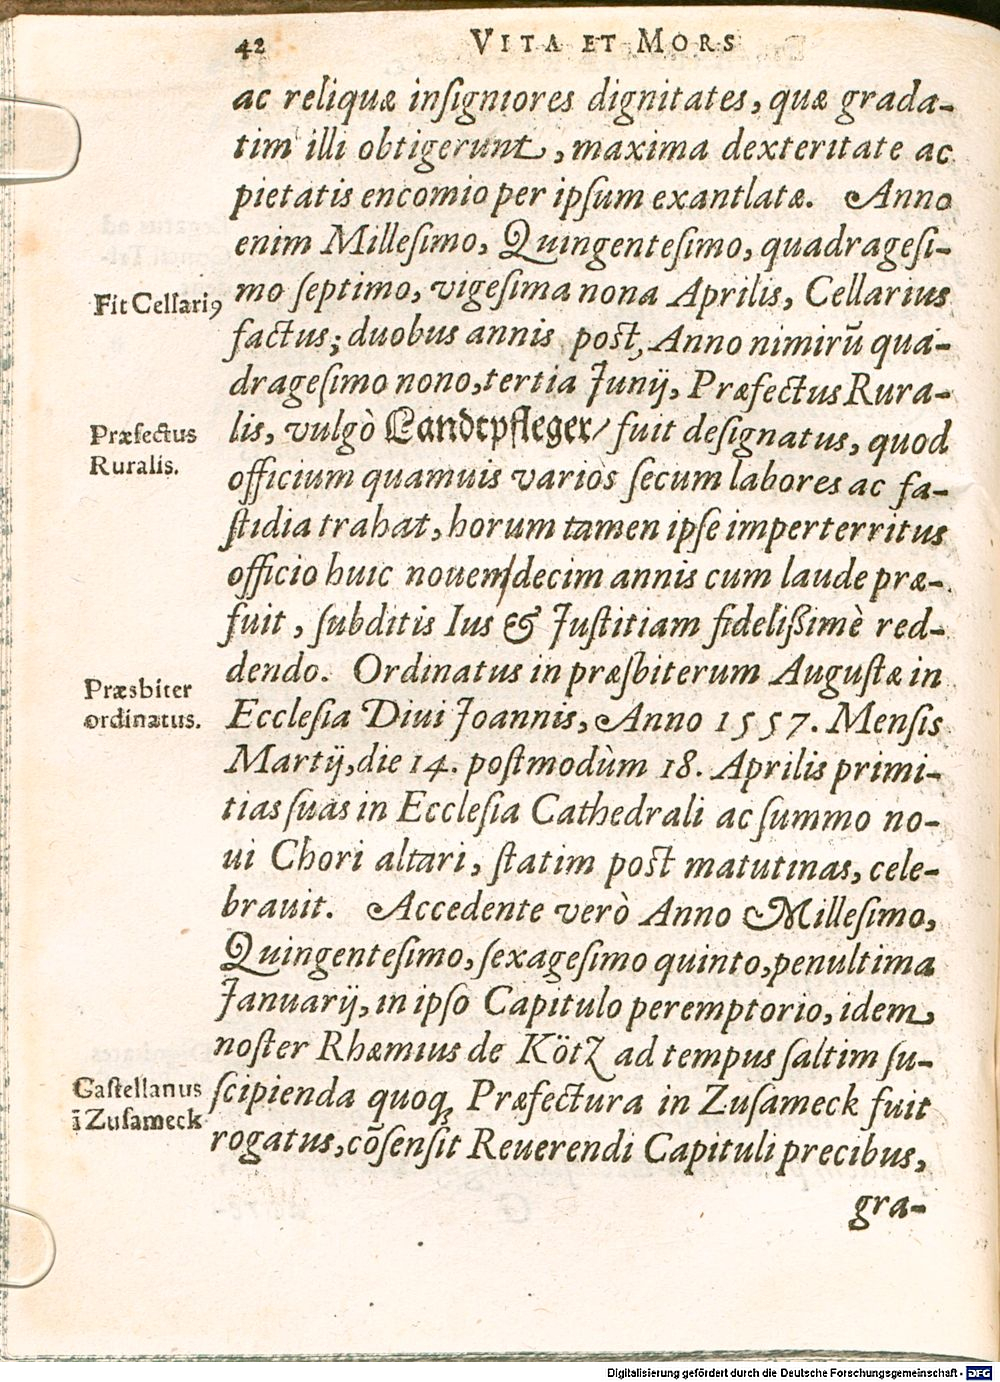 42 VITA ET MORS
ac reliquæ inſigniores dignitates, quæ grada-
tim illi obtigerunt, maxima dexteritate ac
pietatis encomio per ipſum exantlatæ. Anno
enim Milleſimo, Quingenteſimo, quadrageſi-
Fit Cellariꝰ
mo ſeptimo, vigeſima nona Aprilis, Cellarius
factus; duobus annis post, Anno nimirũ qua-
drageſimo nono, tertia Junij, Præfectus Rura-
Præfectus
Ruralis.
lis, vulgò Landtpfleger/ fuit deſignatus, quod
officium quamuis varios ſecum labores ac fa-
ſtidia trahat, horum tamen ipſe imperterritus
officio huic nouem/decim annis cum laude præ-
fuit, ſubditis Ius & Juſtitiam fideliſsimè red-
dendo. Ordinatus in præſbiterum Auguſtæ in
Præsbiter
ordinatus.
Eccleſia Diui Joannis, Anno 1557. Menſis
Martij, die 14. poſtmodùm 18. Aprilis primi-
tias ſuas in Eccleſia Cathedrali ac ſummo no-
ui Chori altari, ſtatim post matutinas, cele-
brauit. Accedente verò Anno Milleſimo,
Quingenteſimo, ſexageſimo quinto, penultima
Januarij, in ipſo Capitulo peremptorio, idem
noſter Rhæmius de Kötz ad tempus ſaltim ſu-
Caſtellanus
ĩ Zuſameck
ſcipienda quoq; Præfectura in Zuſameck fuit
rogatus, cõſenſit Reuerendi Capituli precibus,
gra-
Digitalisierung gefördert durch die Deutsche Forschungsgemeinschaft - DFG